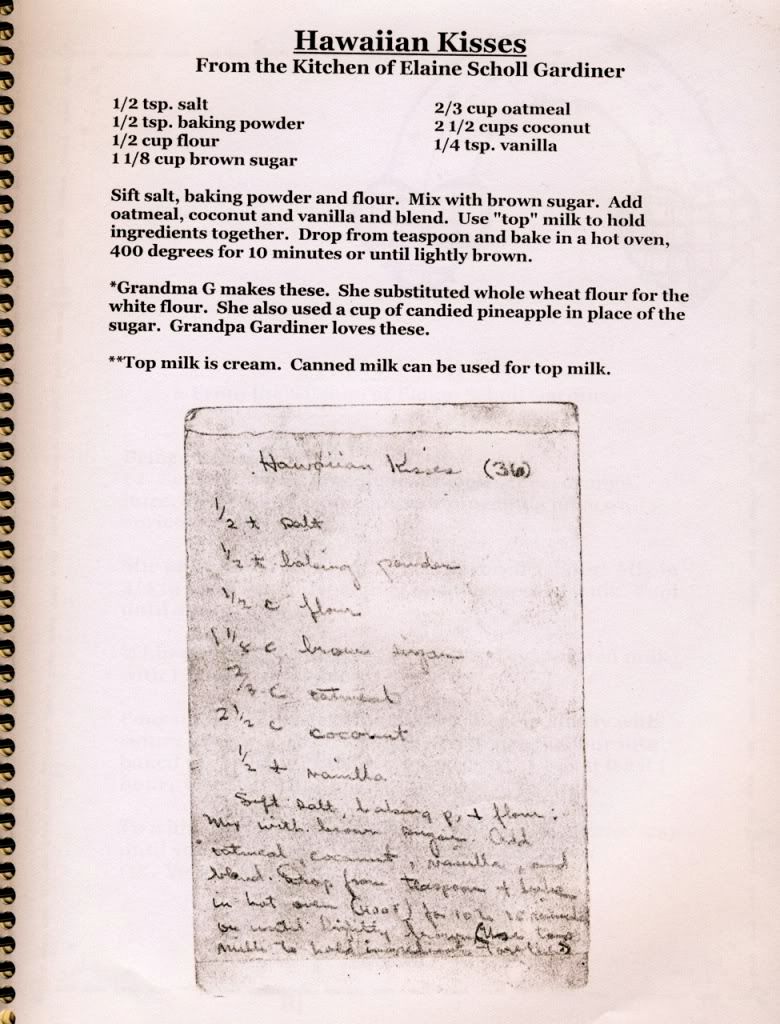 Hawaiian Kisses
From the Kitchen of Elaine Scholl Gardiner
1/2 tsp. salt
1/2 tsp. baking powder
1/2 cup flour
1 1/8 cup brown sugar
2/3 cup oatmeal
2 1/2 cups coconut
1/4 tsp. vanilla
Sift salt, baking powder and flour.  Mix with brown sugar.  Add
oatmeal, coconut and vanilla and blend.  Use "top" milk to hold
ingredients together.  Drop from teaspoon and bake in a hot oven,
400 degrees for 10 minutes or until lightly brown.
*Grandma G makes these.  She substituted whole wheat flour for the
white flour.  She also used a cup of candied pineapple in place of the
sugar.  Grandpa Gardiner loves these.
**Top milk is cream.  Canned milk can be used for top milk.
Hawaiian Kisses (36)
1/2 t salt
1/2 t baking powder
1/2 c flour
1 1/8 c brown sugar
2/3 c oatmeal
2 1/2 c coconut
1/2 t vanilla
Sift salt, baking p, + flour;
Mix with brown sugar. Add
oatmeal, coconut, vanilla, and
blend. Drop from teaspoon + bake
in hot oven (400°) for 10 to 15 minutes
or until lightly brown (Use top
milk to hold ingredients together)